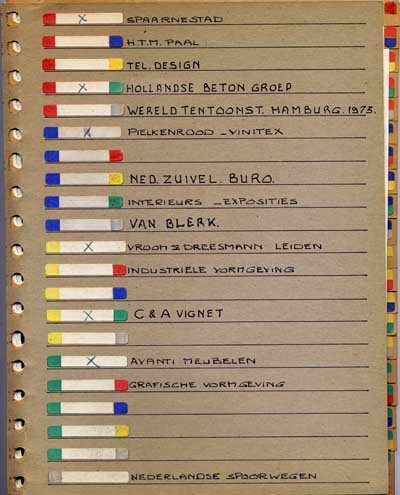 SPAARNESTAD
H.T.M. PAAL
TEL. DESIGN
HOLLANDSE BETON GROEP
WERELD TENTOONST. HAMBURG. 1973.
PIELKENROOD - VINITEX
NED. ZUIVEL. BURO.
INTERIEURS - EXPOSITIES
VAN BLERK.
VROOM & DREESMANN LEIDEN
INDUSTRIELE VORMGEVING
C & A VIGNET
AVANTI MEUBELEN
GRAFISCHE VORMGEVING
NEDERLANDSE SPOORWEGEN